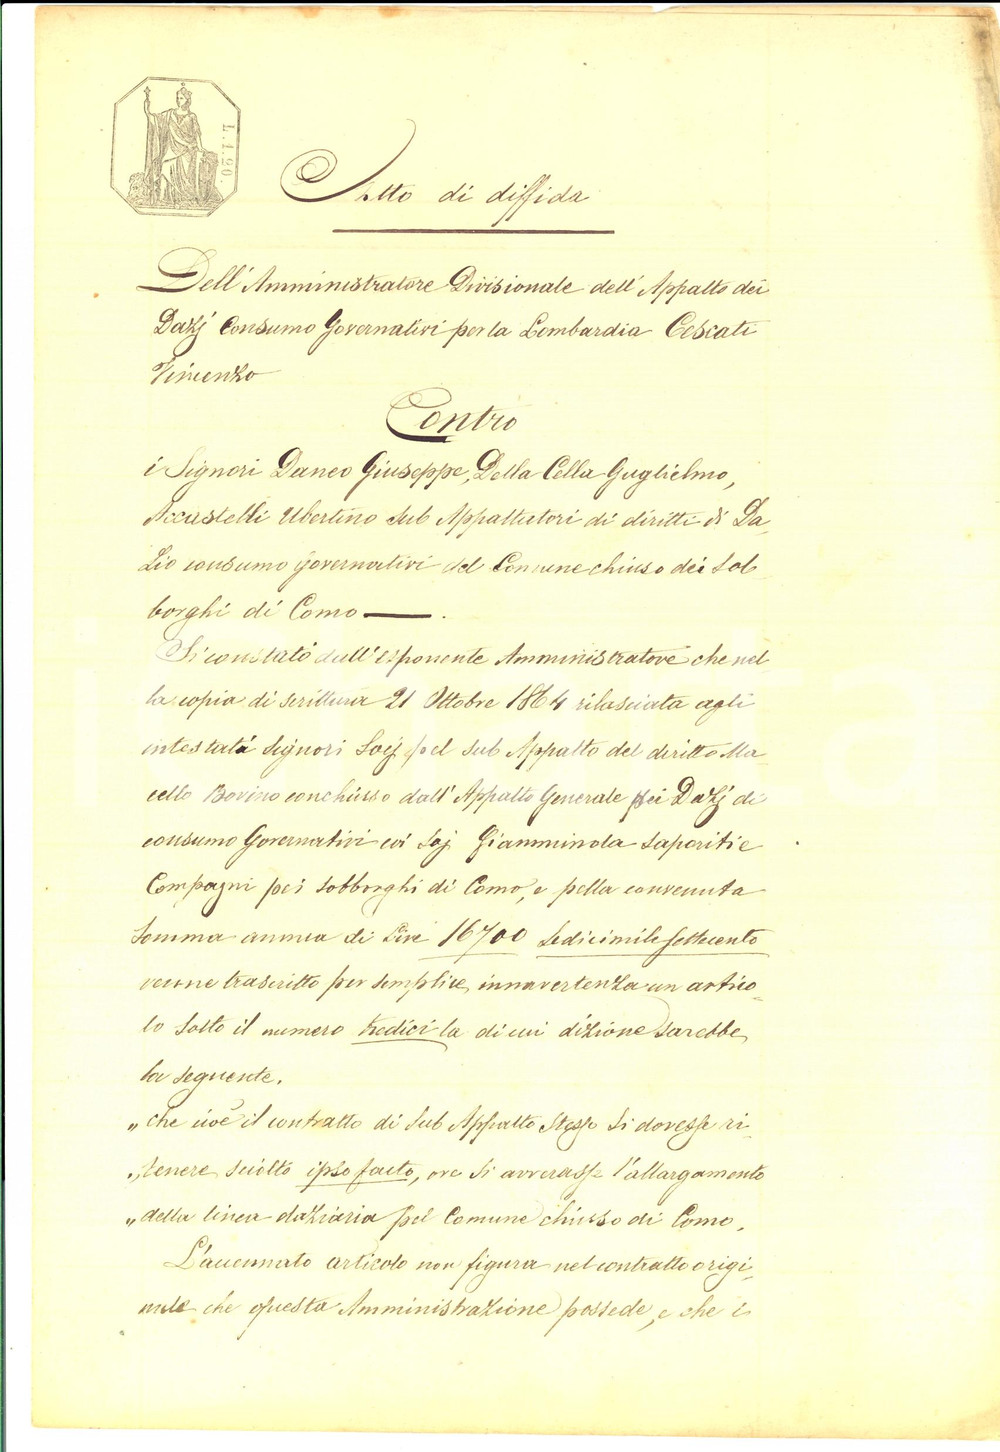 L. 1. 20.
Atto di diffida
Dell'Amministratore Divisionale dell'Appalto dei
Dazj Consumo Governativi per la Lombardia Cescati
Vincenzo
Contro
i Signori Daneo Giuseppe, Della Cella Guglielmo,
Accastelli Ubertino Sub Appaltatori di diritti di Da-
zio consumo governativi del Comune chiuso dei Sob-
borghi di Como.
Si constatò dall'esponente Amministratore che nel-
la copia di scrittura 21 Ottobre 1864 rilasciata agli
intestati Signori Socj pel Sub Appalto del diritto Ma-
cello Bovino conchiuso dall'Appalto Generale dei Dazj di
consumo Governativi coi Socj Giamminola Saporiti e
Compagni pei Sobborghi di Como, e pella convenuta
Somma annua di Lire 16700 Sedicimilesettecento
venne trascritto per semplice innavertenza un artico-
lo sotto il numero tredici la di cui dizione sarebbe
la seguente.
„ che cioè il contratto di Sub Appalto Stesso Si dovesse ri-
„ tenere sciolto ipso facto, ove Si avverasse l'allargamento
„ della linea daziaria pel Comune chiuso di Como.
L'accennato articolo non figura nel contratto origi-
nale che questa Amministrazione possede, e che i